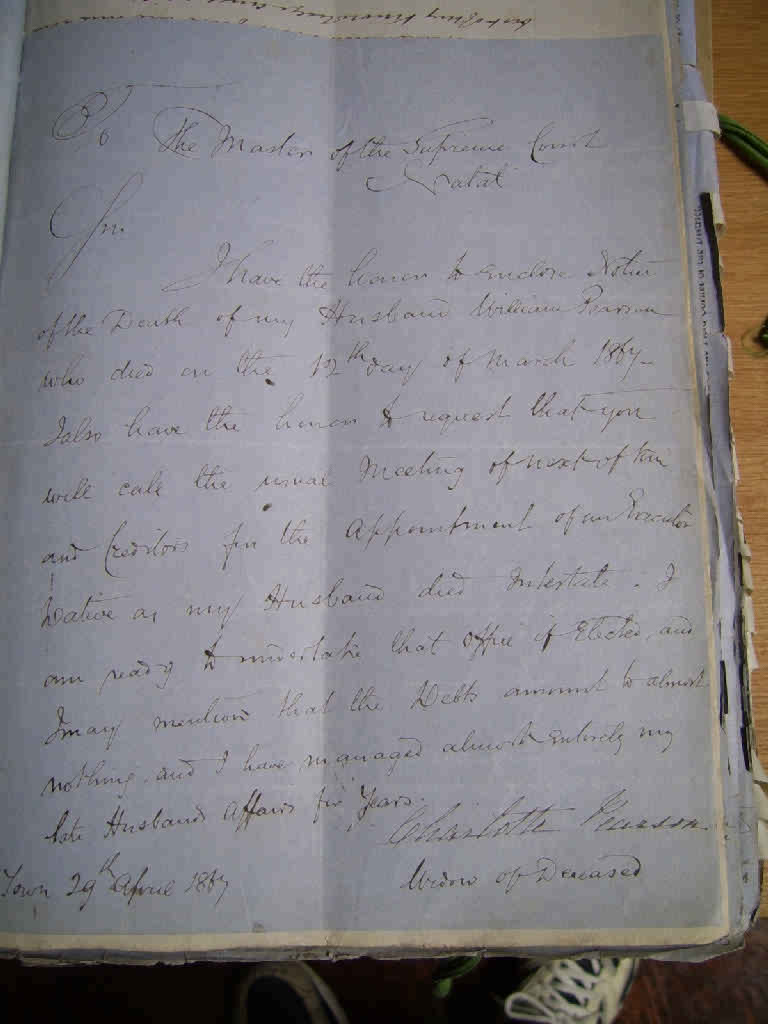 To The Master of the Supreme Court
Natal
Sir
I have the honor to enclose Notice
of the Death of my Husband William Pearson
who died on the 12th day of March 1867-
I also have the honor to request that you
will call the usual Meeting of next of kin
and Creditors for the appointment of an Executor
Dative as my Husband died Intestate. I
am ready to undertake that office if Elected, and
I may mention that the Debts amount to almost
nothing, and I have managed almost Entirely my
late Husbands Affairs for Years.
Charlotte Pearson
Town 29th April 1867
Widow of Deceased